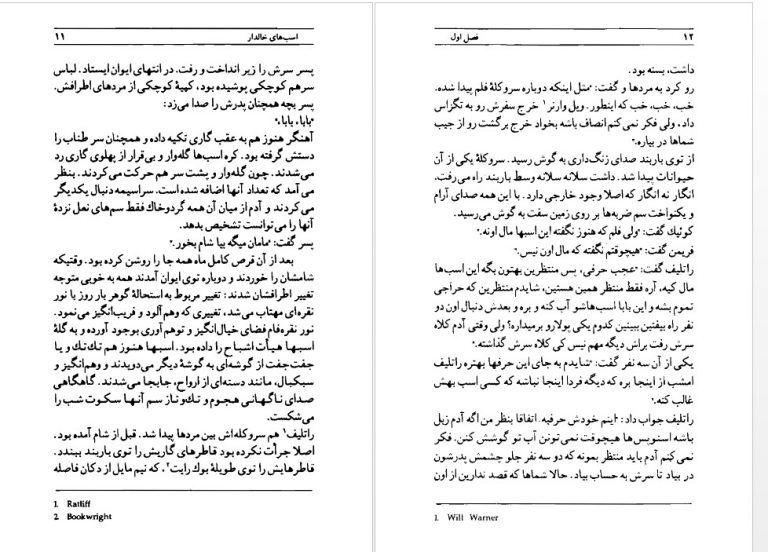 ۱۱ اسب‌های خالدار
پسر سرش را زیر انداخت و رفت. در انتهای ایوان ایستاد. لباس
سرهم کوچکی پوشیده بود، کپیهٔ کوچکی از مردهای اطرافش.
پسر بچه همچنان پدرش را صدا می‌زد:
"بابا، بابا."
آهنگر هنوز هم به عقب گاری تکیه داده و همچنان سر طناب را
دستش گرفته بود. کره اسب‌ها گله‌وار و بی‌قرار از پهلوی گاری رد
می‌شدند. چون گله‌وار و پشت سر هم حرکت می‌کردند. بنظر
می آمد که تعداد آنها اضافه شده است. سراسیمه دنبال یکدیگر
می‌کردند و آدم از میان آن همه گردوخاك فقط سم‌های نعل نزدهٔ
آنها را می‌توانست تشخیص بدهد.
پسر گفت: "مامان میگه بیا شام بخور."
بعد از آن قرص کامل ماه همه جا را روشن کرده بود. وقتیکه
شامشان را خوردند و دوباره توی ایوان آمدند همه به خوبی متوجه
تغییر اطرافشان شدند: تغییر مربوط به استحالهٔ گوهر بار روز با نور
نقره‌ای مهتاب می‌شد، تغییری که وهم‌آلود و فریب‌انگیز می‌نمود.
نور نقره‌فام فضای خیال‌انگیز و توهم‌آوری بوجود آورده و به گلهٔ
اسبها هیأت اشباح را داده بود. اسبها هنوز هم تك‌تك و یا
جفت‌جفت از گوشه‌ای به گوشهٔ دیگر می‌دویدند و وهم‌انگیز و
سبکبال، مانند دسته‌ای از ارواح، جابجا می‌شدند. گاهگاهی
صدای ناگهانی هجوم و تك‌وتاز سم آنها سکوت شب را
می‌شکست.
راتلیف۱ هم سروکله‌اش بین مردها پیدا شد. قبل از شام آمده بود.
اصلا جرأت نکرده بود قاطرهای گاریش را توی باربند ببندد.
قاطرهایش را توی طویلهٔ بوك رایت۲، که نیم مایل از دکان فاصله
1. Ratliff
2. Bookwright
۱۲ فصل اول
داشت، بسته بود.
رو کرد به مردها و گفت: "مثل اینکه دوباره سروکلهٔ فلم پیدا شده.
خب، خب، خب که اینطور. ویل وارنر۱ خرج سفرش رو به تگزاس
داد، ولی فکر نمی‌کنم انصاف باشه بخواد خرج برگشت رو از جیب
شماها در بیاره."
از توی باربند صدای زنگ‌داری به گوش رسید. سروکلهٔ یکی از آن
حیوانات پیدا شد. داشت سلانه سلانه وسط باربند راه می‌رفت،
انگار نه انگار که اصلا وجود خارجی دارد. با این همه صدای آرام
و یکنواخت سم ضربه‌ها بر روی زمین سفت به گوش می‌رسید.
کوئیك گفت: "ولی فلم که هنوز نگفته این اسبها مال اونه."
فریمن گفت: "هیچوقتم نگفته که مال اون نیس."
راتلیف گفت: "عجب حرفی، پس منتظرین بهتون بگه این اسب‌ها
مال کیه. آره فقط منتظر همین هستین، شایدم منتظرین که حراجی
تموم بشه و این بابا اسب‌هاشو آب کنه و بره و بعدش دنبال اون دو
نفر راه بیفتین ببینین کدوم یکی پولارو برمیداره؟ ولی وقتی آدم کلاه
سرش رفت براش دیگه مهم نیس کی کلاه سرش گذاشته."
یکی از آن سه نفر گفت: "شایدم به جای این حرفها بهتره راتلیف
امشب از اینجا بره که دیگه فردا اینجا نباشه که کسی اسب بهش
غالب کنه."
راتلیف جواب داد: "اینم خودش حرفیه. اتفاقا بنظر من اگه آدم زبل
باشه اسنوپس‌ها هیچوقت نمی‌تونن آب تو گوشش کنن. فکر
نمی کنم آدم باید منتظر بمونه که دو سه نفر جلو چشمش پدرشون
در بیاد تا سرش به حساب بیاد. حالا شماها که قصد ندارین از اون
1. Will Warner